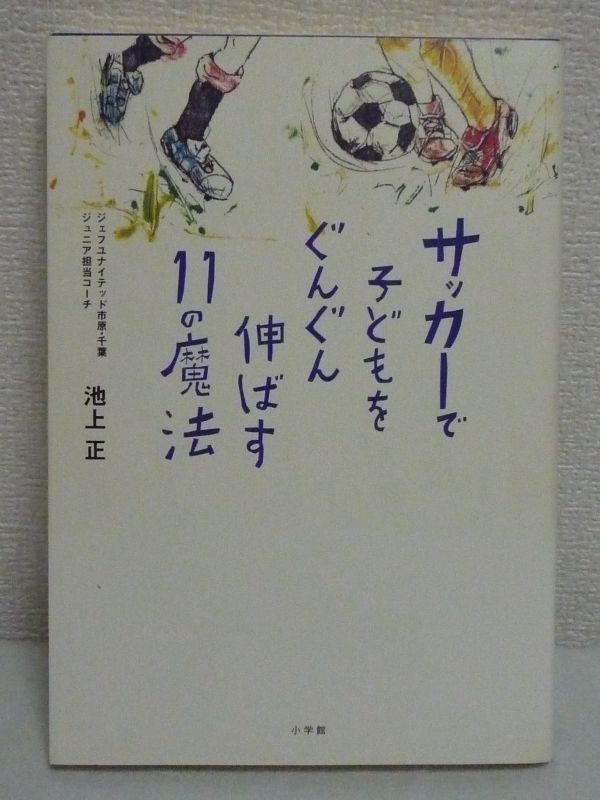 サッカーで
子どもを
ぐんぐん
伸ばす
11の魔法
ジェフユナイテッド市原・千葉
ジュニア担当コーチ
池上 正
小学館